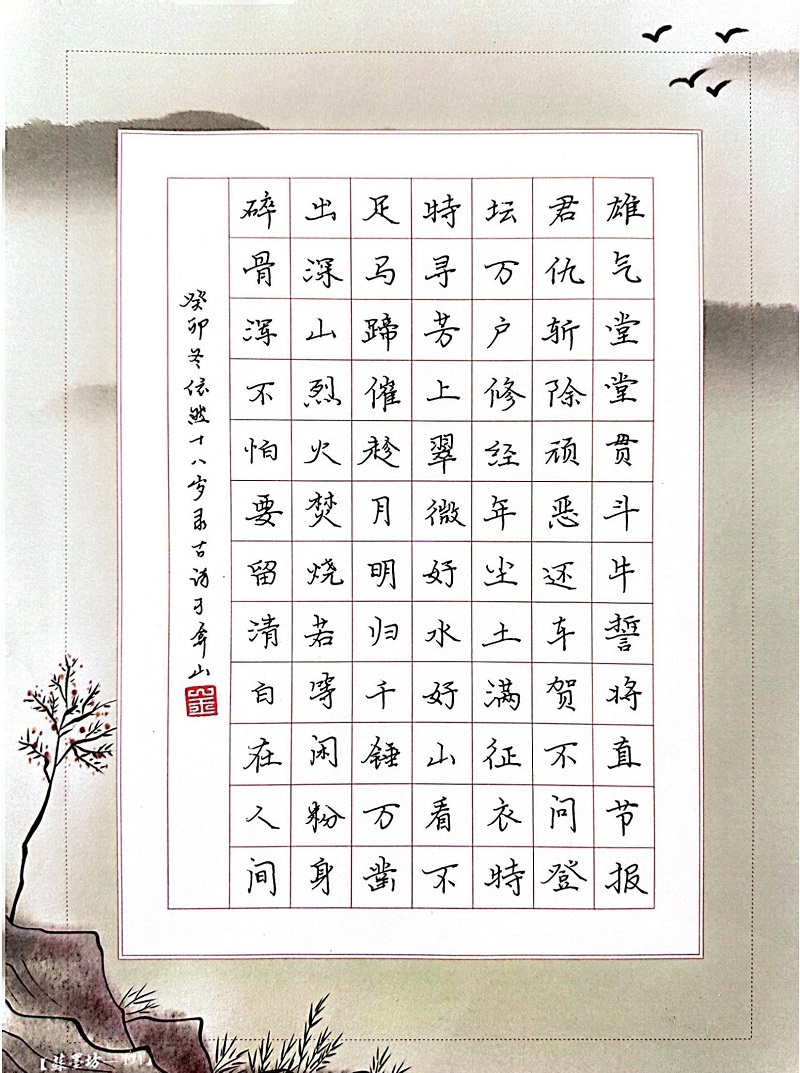 雄气堂堂贯斗牛誓将直节报
君仇斩除顽恶还车贺不问登
坛万户修经年尘土满征衣特
特寻芳上翠微好水好山看不
足马蹄催趁月明归千锤万凿
出深山烈火焚烧若等闲粉身
碎骨浑不怕要留清白在人间
癸卯冬依然十八岁录古诗于弇山